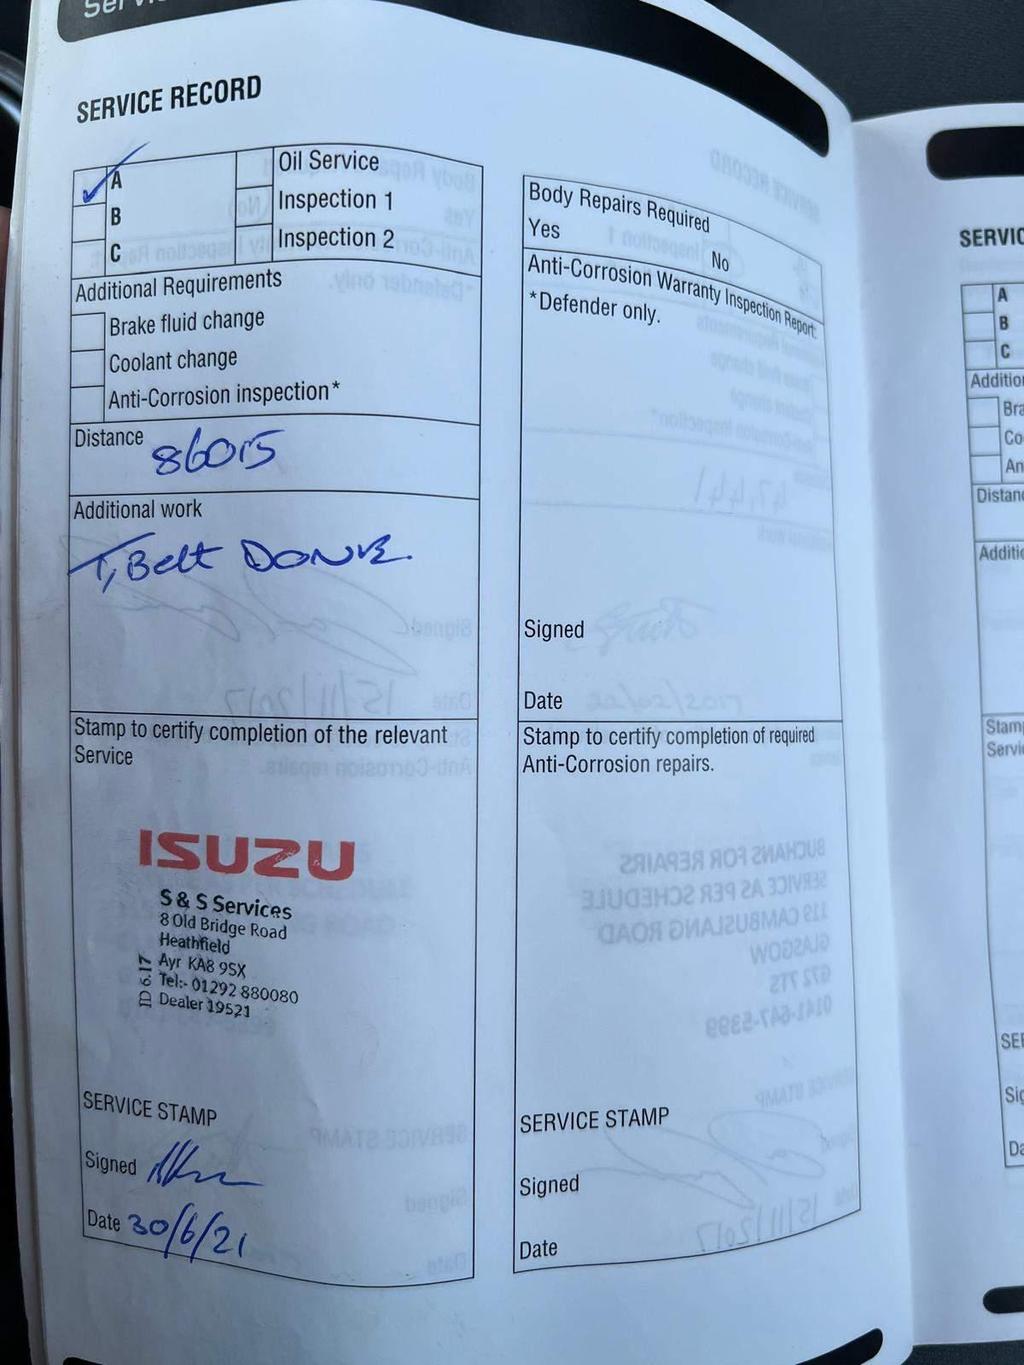 Servi
SERVICE RECORD
A
B
C
Oil Service
Inspection 1
Inspection 2
Additional Requirements
Brake fluid change
Coolant change
Anti-Corrosion inspection*
Distance 86015
Additional work
T, Belt DONE
Stamp to certify completion of the relevant
Service
ISUZU
S & S Services
8 Old Bridge Road
Heathfield
Ayr KA8 9SX
Tel:- 01292 880080
Dealer 19521
ID 617
SERVICE STAMP
Signed
Date 30/6/21
Body Repairs Required
Yes
No
Anti-Corrosion Warranty Inspection Report:
*Defender only.
Signed
Date
Stamp to certify completion of required
Anti-Corrosion repairs.
SERVICE STAMP
Signed
Date
SERVIC
A
B
C
Additio
Bra
Co
An
Distanc
Additio
Stamp
Servic
SER
Sig
Da